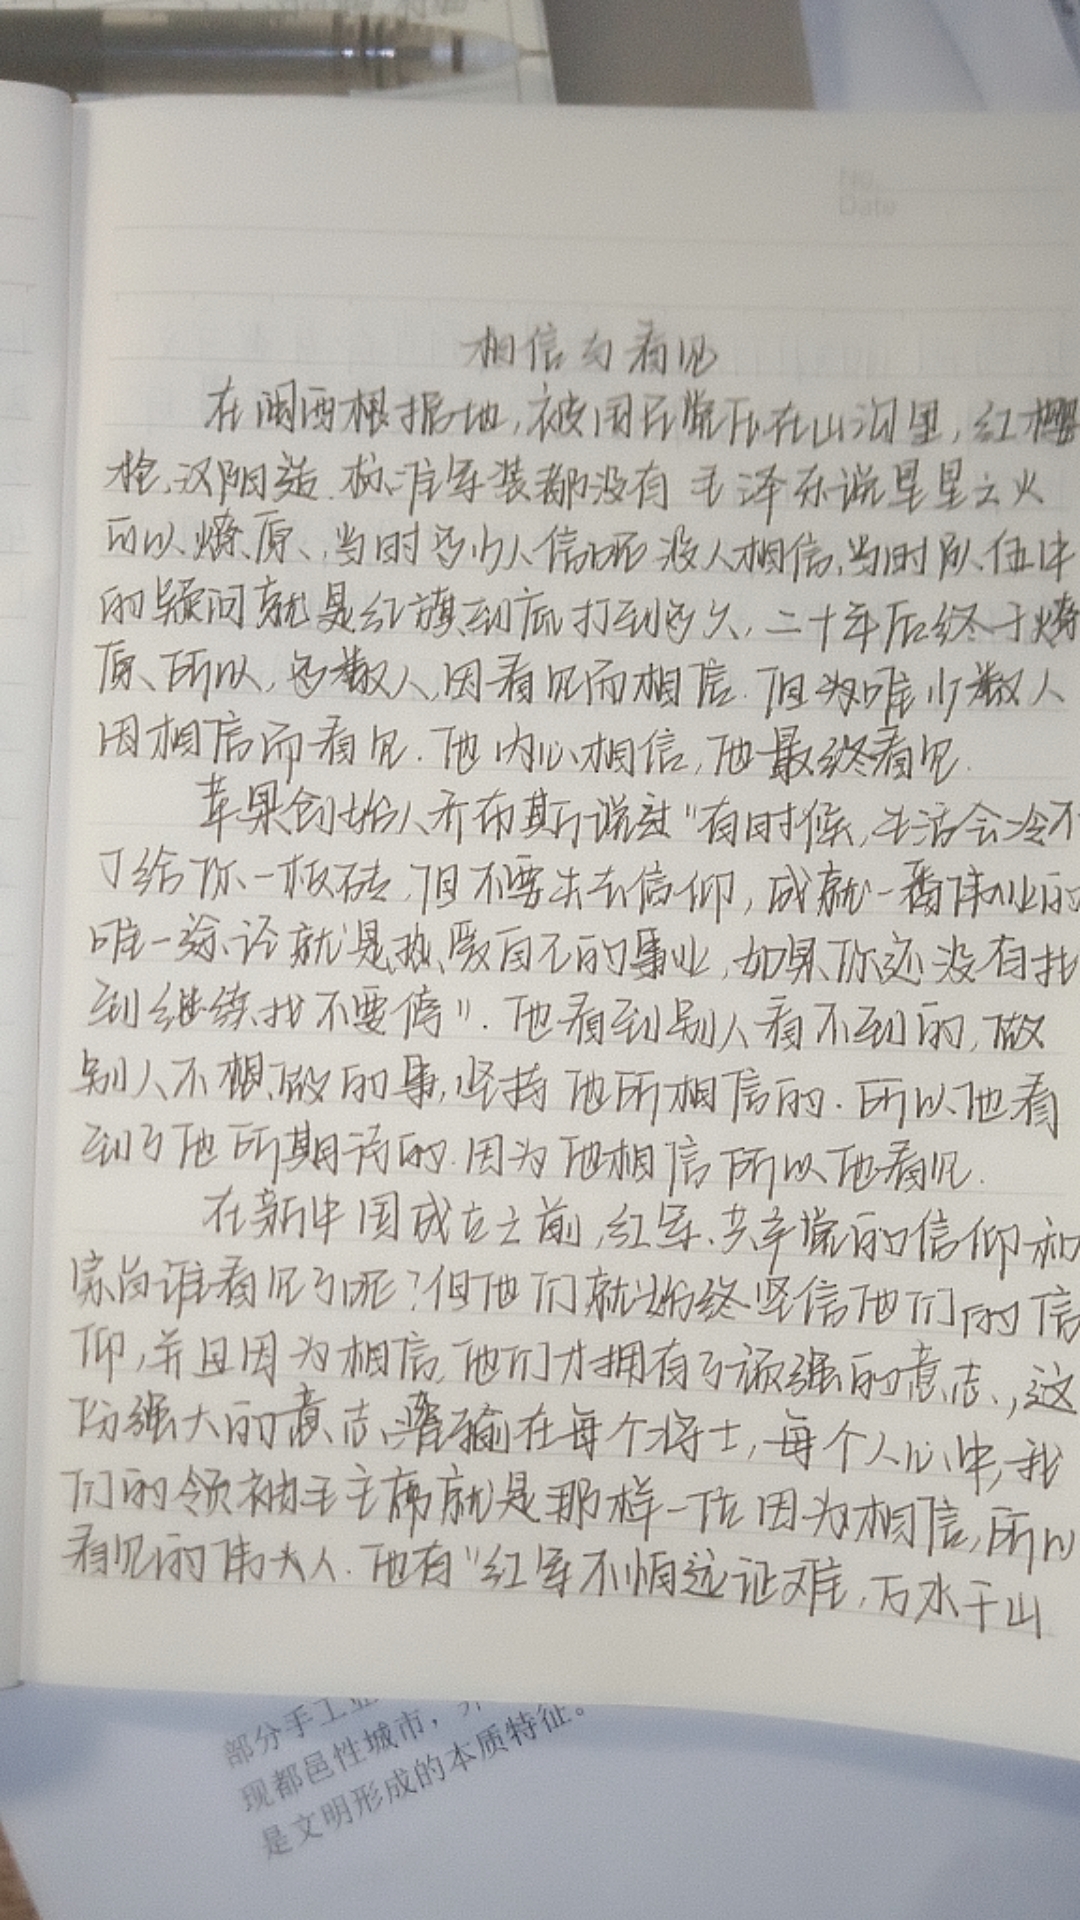 No.
Date
相信与看见
在闽西根据地,被国民党压在山沟里,红樱
枪、汉阳造.标准军装都没有 毛泽东说星星之火
可以燎原、,当时多少人信呢 没人相信,当时队伍中
的疑问就是红旗到底打到多久,二十年后终于燎
原、所以,多数人,因看见而相信.但为唯少数人
因相信而看见.他内心相信,他最终看见.
苹果创始人乔布斯说过"有时候,生活会冷不
丁给你一板砖,但不要失去信仰,成就一番伟业的
唯一途径就是热爱自己的事业,如果你还没有找
到继续找不要停".他看到别人看不到的,做
别人不想做的事,坚持他所相信的.所以他看
到了他所期待的.因为他相信所以他看见.
在新中国成立之前,红军、共产党的信仰和
崇尚谁看见了呢?但他们就始终坚信他们的信
仰,并且因为相信,他们才拥有了顽强的意志,这
份强大的意志灌输在每个将士,每个人心中,我
们的领袖毛主席就是那样一位因为相信,所以
看见的伟大人.他有"红军不怕远征难,万水千山
部分手工业
现都邑性城市,
是文明形成的本质特征。